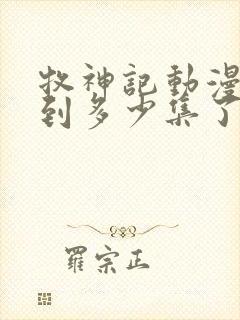 牧神記動漫
到多少集了
羅宗正